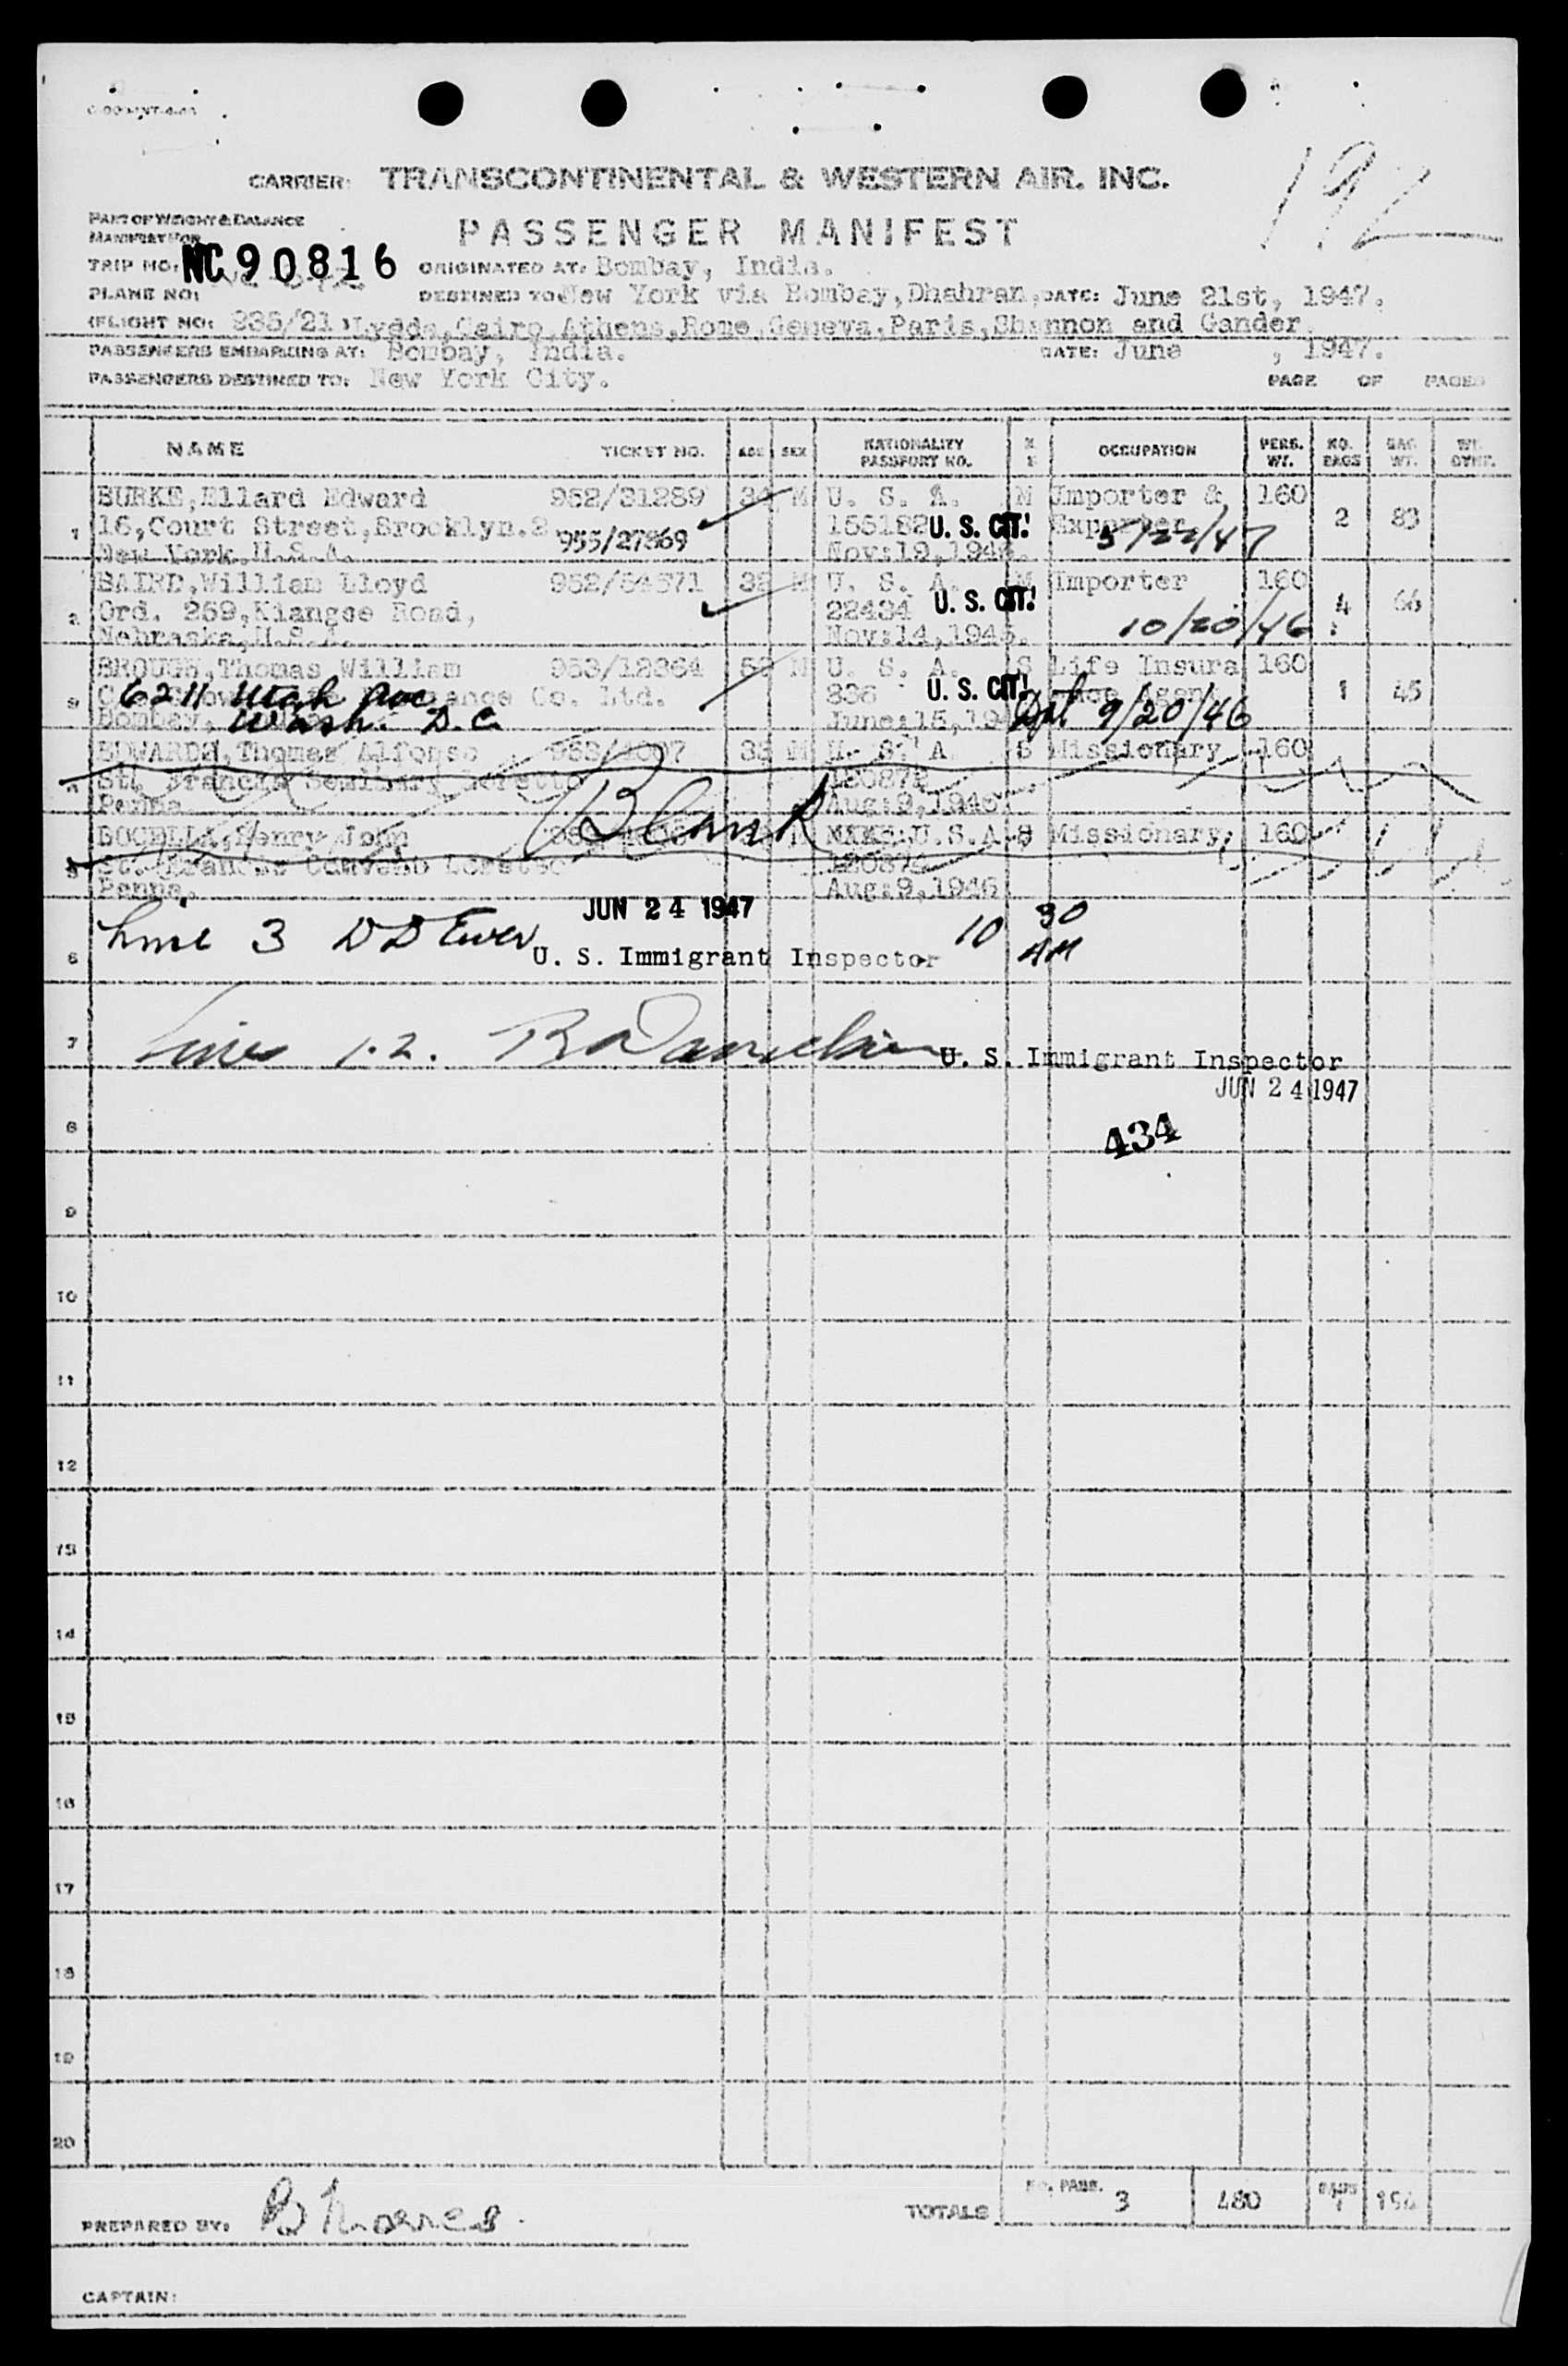 192
CARRIER: TRANSCONTINENTAL & WESTERN AIR. INC.
PART OF WEIGHT & BALANCE
PASSENGER MANIFEST
MANIFEST FOR
TRIP NO: NC90816 ORIGINATED AT: Bombay, India.
PLANE NO: DESTINED TO New York via Bombay,Dhahran, DATE: June 21st, 1947.
(FLIGHT NO: 335/21) Lydda,Cairo,Athens,Rome,Geneva,Paris,Shannon and Gander.
PASSENGERS EMBARKING AT: Bombay, India. DATE: June , 1947.
PASSENGERS DESTINED TO: New York City.
PAGE OF PAGES
NAME TICKET NO. AGE SEX NATIONALITY PASSPORT NO. M S OCCUPATION PERS. WT. NO. BAGS BAG WT. WT. OTHR.
BURKE,Ellard Edward 952/31289 34 M U. S. A. M Importer & 160
1 16,Court Street,Brooklyn.2 955/27869 155182 U. S. CIT. Exporter 5/22/47 2 83
New York,U.S.A. Nov:19,1945.
BAIRD,William Lloyd 952/54571 32 M U. S. A. M Importer 160
2 Ord. 259,Kiangse Road, 22434 U. S. CIT. 4 66
Nebraska,U.S.A. Nov:14,1945. 10/20/46
BROUGH,Thomas William 953/12364 52 M U. S. A. S Life Insura 160
3 6211 Utah Ave ance Co. Ltd. 836 U. S. CIT. nce Agent 1 45
Bombay, Wash. D.C. June:15,19 Dpt 9/20/46
EDWARDS,Thomas Alfonso 35 M U. S. A. S Missionary 160
4 St. Francis Seminary Loretto 120872
Penna. Aug:9,1946
Blank
BOCELLA,Henry John M U.S.A S Missionary 160
5 St. Francis Convent Loretto
Penna. Aug:9,1946
JUN 24 1947
6 Line 3 D D Ewer U. S. Immigrant Inspector 10 30 AM
7 Lines 1.2. U. S. Immigrant Inspector
JUN 24 1947
8 434
9
10
11
12
13
14
15
16
17
18
19
20
PREPARED BY: TOTALS NO. PASS. 3 480 BAGS 7 194
CAPTAIN: